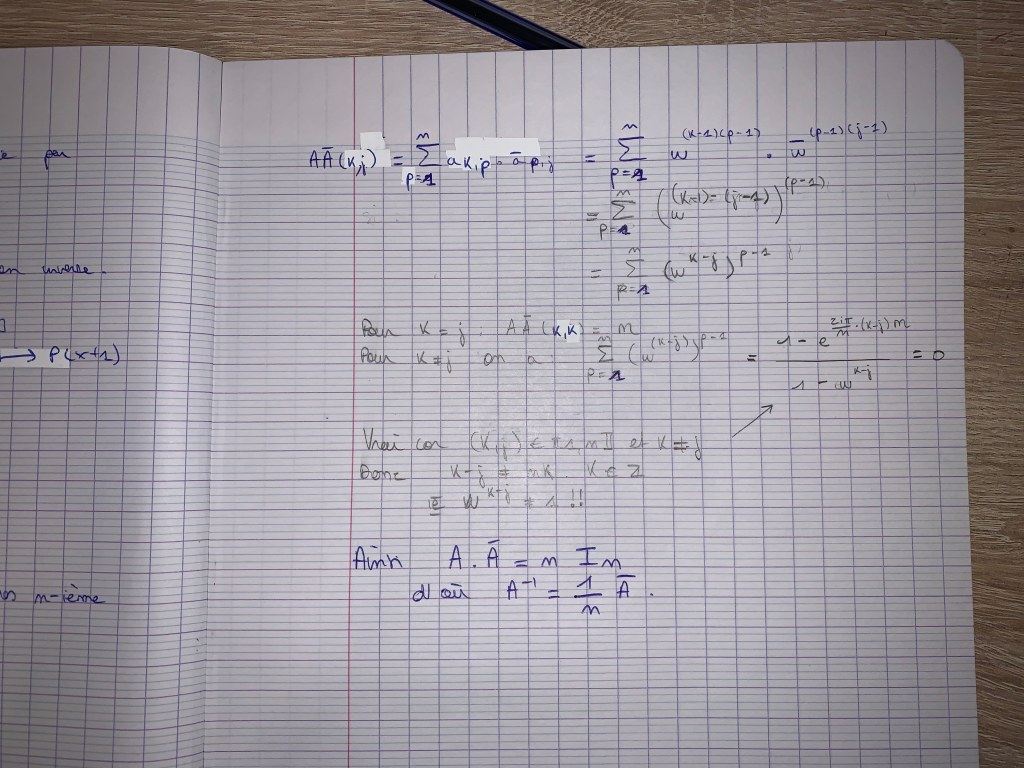 e par
en inverse.
]
⟶ P(x+1)
n-ième
AĀ(k,j) = ∑_{p=1}^{n} a k,p · ā p,j = ∑_{p=1}^{n} w^{(k-1)(p-1)} · w̄^{(p-1)(j-1)}
= ∑_{p=1}^{n} (w^{(k-1)-(j-1)})^{(p-1)}
= ∑_{p=1}^{n} (w^{k-j})^{p-1}
Pour k = j : AĀ(k,k) = n
Pour k ≠ j on a : ∑_{p=1}^{n} (w^{(k-j)})^{p-1} = \frac{1 - e^{\frac{2iπ}{n}·(k-j)n}}{1 - w^{k-j}} = 0
Vrai car (k,j) ∈ ⟦1,n⟧ et k ≠ j
Donc k-j ≠ nk, k ∈ Z
w^{k-j} ≠ 1 !!
Ainsi A.Ā = n In
d'où A^{-1} = \frac{1}{n} Ā.